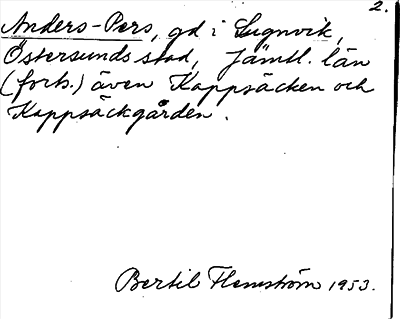 2.
Anders-Pers, gd i Lugnvik,
Östersunds stad, Jämtl. län
(forts.) även Kappsäcken och
Kappsäckgården.
Bertil Flemström 1953.